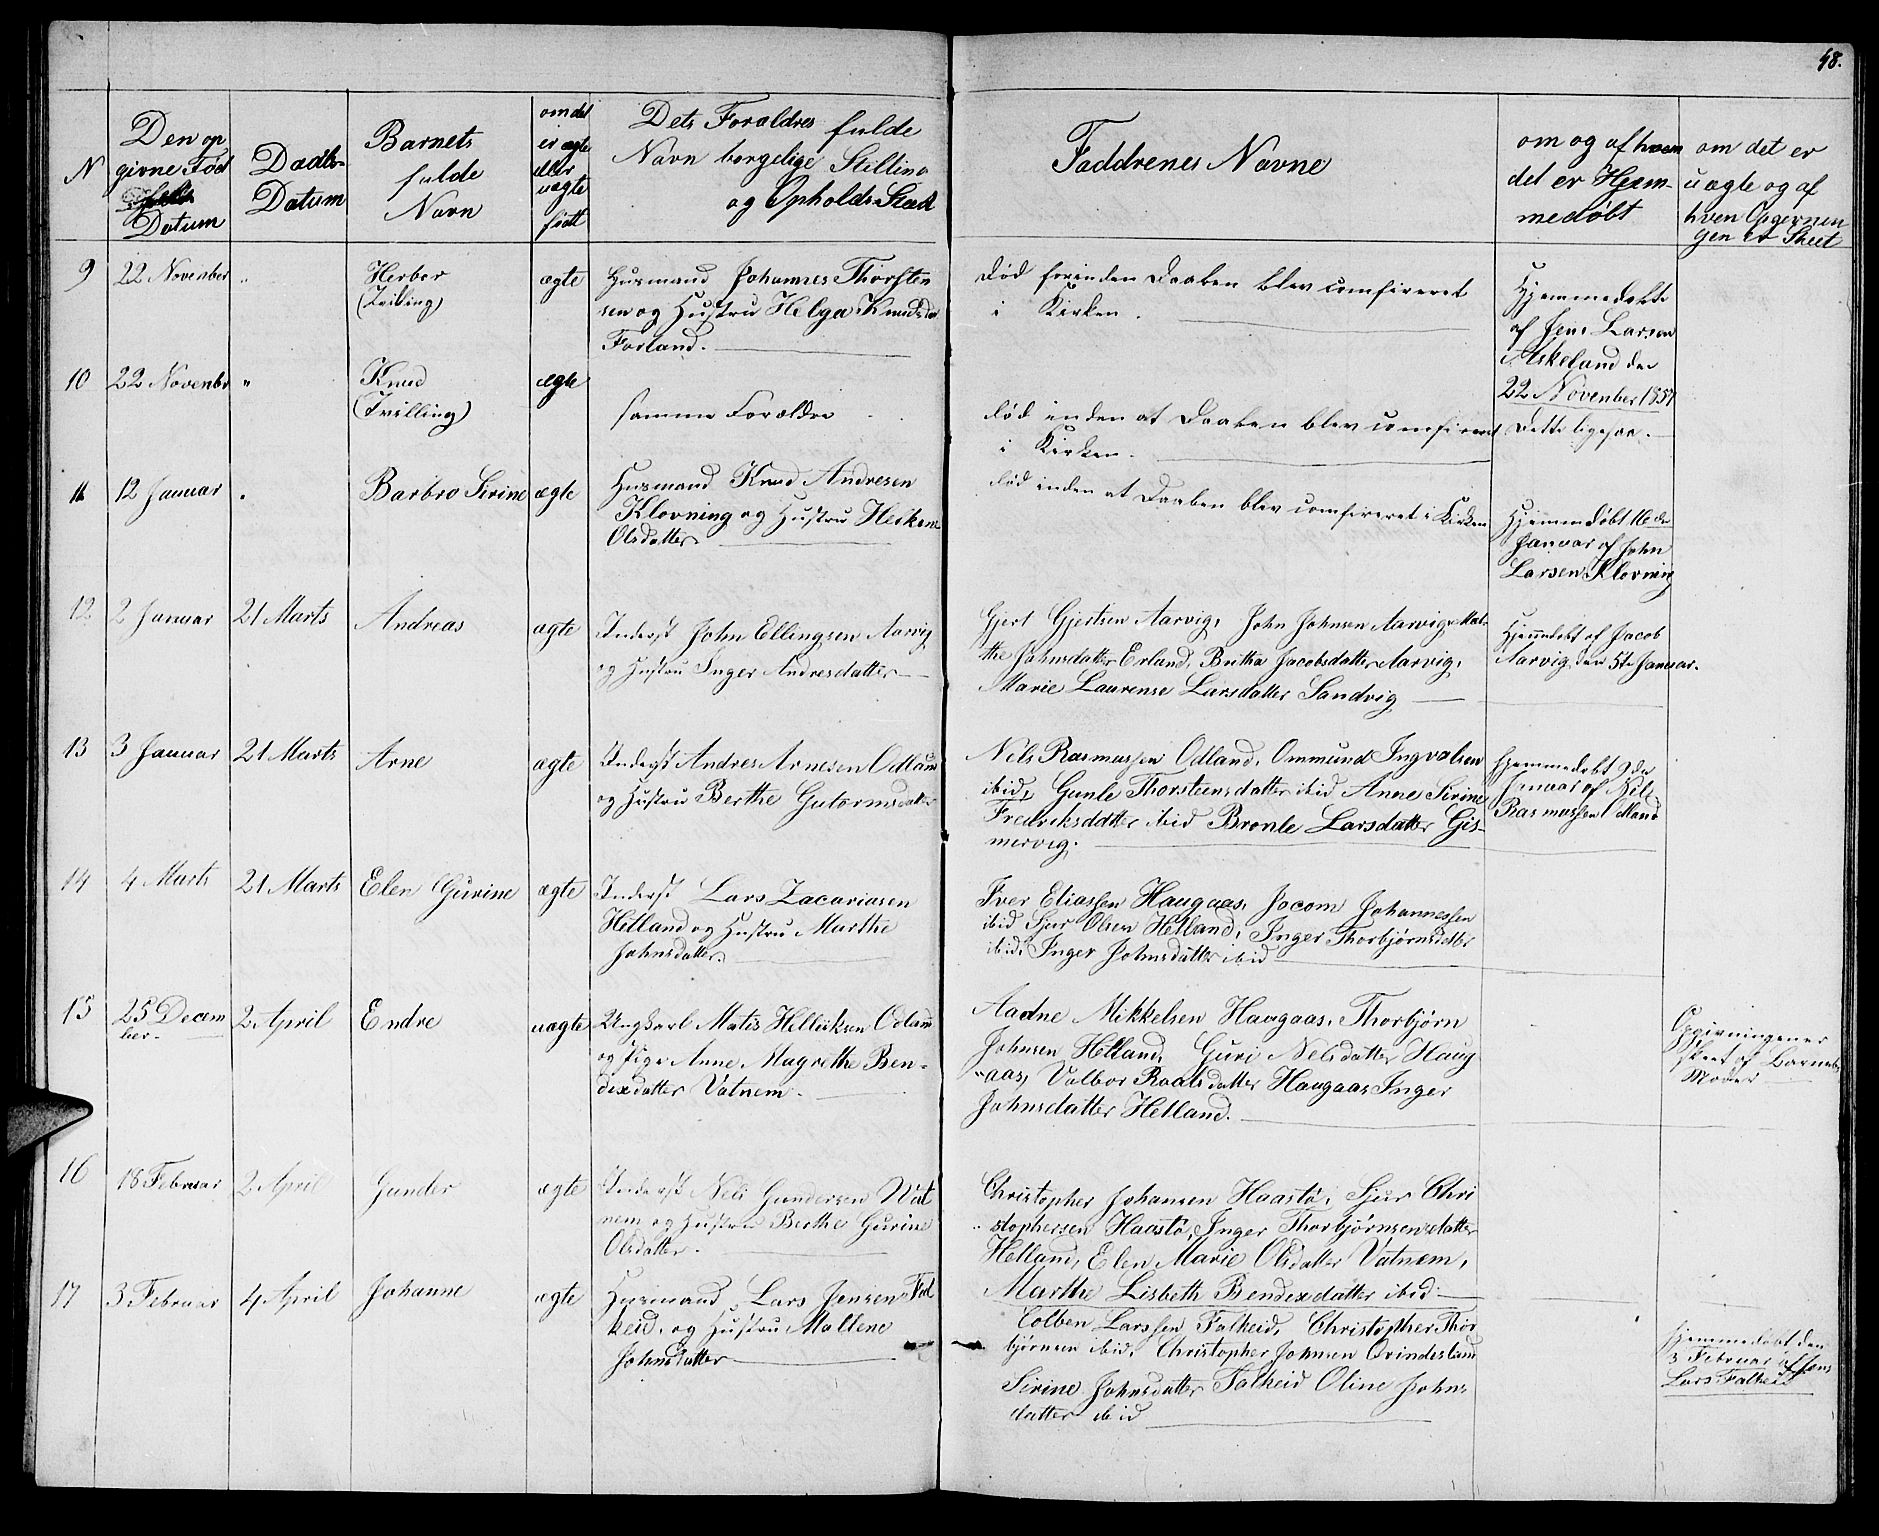 48.
N
Den op
givne Fød
Datum
Daabs-
Datum
Barnets
fulde
Navn
om det
er ægte
eller
uægte
født
Dets Foraldres fulde
Navn borgelige Stelling
og Opholds-Sted
Faddrenes Navne
om og af hvem
det er Hjem-
medøbt
om det er
uægte og af
hven Opgevnin
gen er Skeet
9
22 November
"
Herbor
(Tvilling)
ægte
Husmand Johannes Thorsten
sen og Hustru Helga Knudsdr
Forland.
død forinden Daaben blev comfireret
i Kirken.
Hjemmedøbte
af Jens Larsen
Askeland den
22 November 1857
10
22 Novenbr
"
Knud
(Tvilling)
ægte
samme Forældre
død inden at Daaben blev comfireret
i Kirken.
dette ligesaa.
11
12 Januar
"
Barbro Sirine
ægte
Husmand Knud Andresen
Klovning og Hustru
Olsdatter
død inden at Daaben blev comfireret i Kirken
Hjemmedøbt 16 de
Januar af John
Larsen Klovning
12
2 Januar
21 Marts
Andreas
ægte
Inderst John Ellingsen Aarvig
og Hustru Inger Andresdatter
Gjert Gjertsen Aarvig, John Johnsen Aarvig, Mal-
the Johnsdatter Erland, Britha Jacobsdatter Aarvig,
Marie Laurense Larsdatter Sandvig
Hjemmedøbt af Jacob
Aarvig den 5te Januar.
13
3 Januar
21 Marts
Arne
ægte
Inderst Andres Arnesen Odland
og Hustru Berthe Gutormsdatter
Nels Rasmussen Odland, Ommund Ingvalsen
ibid, Gunle Thorsteinsdatter ibid Anne Sirine
Fredriksdatter ibid Bronle Larsdatter Gis-
mervig.
Hjemmedøbt 9 de
Januar af Nils
Rasmussen Odland
14
4 Marts
21 Marts
Elen Gurine
ægte
Inderst Lars Zacariasen
Helland og Hustru Marthe
Johnsdatter.
Iver Eliassen Haugaas, Jocom Johannessen
ibid Sjur Olsen Helland, Inger Thorbjørnsdtter
ibid, Inger Johnsdatter ibid
15
25 Decem
ber.
2 April
Endre
uægte
Ungkarl Matis Helliksen Odland
og Pige Anne Magrethe Ben-
dixdatter Vatnem.
Aadne Mikkelsen Haugaas, Thorbjørn
Johnsen Helland, Guri Nelsdatter Haug
"aas, Valbor Roalsdatter Haugaas Inger
Johnsdatter Helland.
Opgivningener
skeet af Barnets
Moder
16
18 Februar
2 April
Gunder
ægte
Inderst Nels Gundersen Vat
nem og Hustru Berthe Gurine
Olsdatter.
Christopher Johansen Haastø, Sjur Chri
"stophersen Haastø, Inger Thorbjørnsendatter
Helland, Elen Marie Olsdatter Vatnem,
Marthe Lisbeth Bendixdatter ibid
17
3 Februar
4 April
Johanne
ægte
Husmand Lars Jensen Fal
keid, og Hustru Mallene
Johnsdatter
Colben Larssen Falkeid, Christopher Thor
bjørnsen ibid, Christopher Johnsen Qvindesland
Sirine Johnsdatter Falkeid Oline Johns
datter ibid
Hjemmedøbt den
3 Februar af Jens
Lars Falkeid